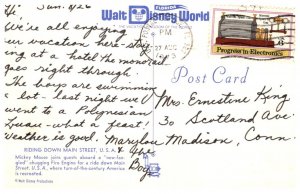 Hi Sun. 8/26
We're all enjoying
our vacation here - stay-
ing at a hotel the monorail
goes right through.
The boys are swimming
a lot - last night we
went to a Polynesian
Luau - what a feast!
Weather is good.
Marylou
& the
Boys
FLORIDA
Walt Disney World
PM
27 AUG
Progress in Electronics
Post Card
Mrs. Ernestine King
30 Scotland Ave
Madison, Conn.
RIDING DOWN MAIN STREET, U.S.A.
Mickey Mouse joins guests aboard a "new-fan-
gled" chugging Fire Engine for a ride down Main
Street, U.S.A., where turn-of-the-century America
is recreated.
© Walt Disney Productions